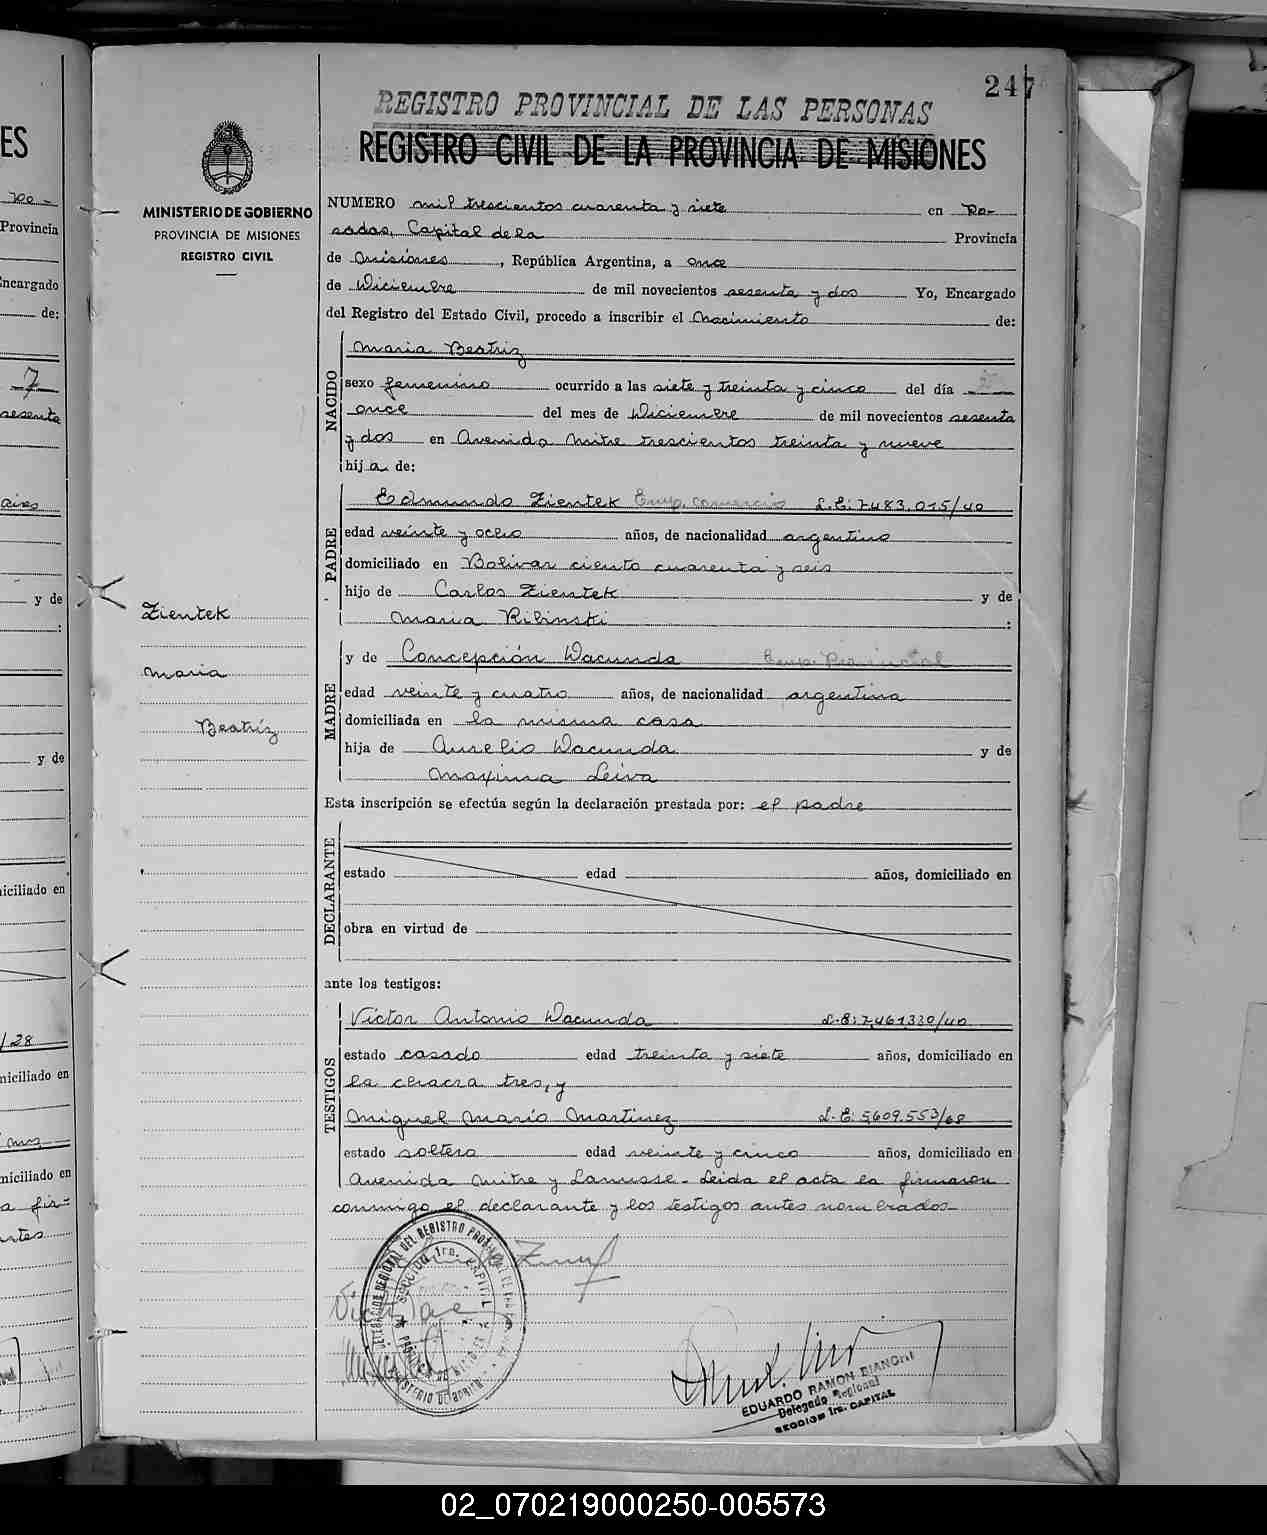 247
REGISTRO PROVINCIAL DE LAS PERSONAS
REGISTRO CIVIL DE LA PROVINCIA DE MISIONES
MINISTERIO DE GOBIERNO
PROVINCIA DE MISIONES
REGISTRO CIVIL
NUMERO mil trescientos cuarenta y siete en Po-
sadas, Capital de la Provincia
de Misiones, República Argentina, a once
de Diciembre de mil novecientos sesenta y dos Yo, Encargado
del Registro del Estado Civil, procedo a inscribir el Nacimiento de:
NACIDO
Maria Beatriz
sexo femenino ocurrido a las siete y treinta y cinco del día
once del mes de Diciembre de mil novecientos sesenta
y dos en Avenida Mitre trescientos treinta y nueve
hija de:
PADRE
Edmundo Zientek Emp. comercio L.E: 7483.015/40
edad veinte y ocho años, de nacionalidad argentino
domiciliado en Bolivar ciento cuarenta y seis
hijo de Carlos Zientek y de
Maria Rilinski :
MADRE
y de Concepción Dacunda Emp. Provincial
edad veinte y cuatro años, de nacionalidad argentina
domiciliada en la misma casa
hija de Aurelio Dacunda y de
Maxima Leiva
Esta inscripción se efectúa según la declaración prestada por: el padre
DECLARANTE
estado edad años, domiciliado en
obra en virtud de
ante los testigos:
TESTIGOS
Victor Antonio Dacunda L.E: 7,461330/40
estado casado edad treinta y siete años, domiciliado en
la chacra tres, y
Miguel Mario Martinez L.E: 5,609.553/68
estado soltero edad veinte y cinco años, domiciliado en
Avenida Mitre y Lanusse.- Leida el acta la firmaron
conmigo el declarante y los testigos antes nombrados-
Zientek
Maria
Beatriz
SECCION 1ra. CAPITAL
EDUARDO RAMON BIANCHI
Delegado Regional
SECCION 1ra. CAPITAL
ES
Provincia
Encargado
de:
7
sesenta
y de
:
y de
iciliado en
/28
miciliado en
miciliado en
a fir-
02_070219000250-005573